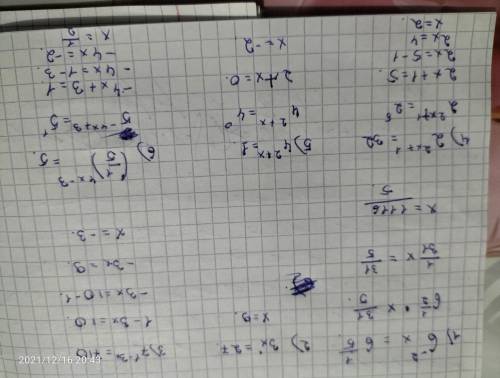 1) 6⁻² x = 6 1/5
x = 1116/5
2) 3x = 27
x = 9.
1 - 3x = 10.
-3x = 10 - 1.
-3x = 9.
x = -3.
4) 2²ˣ⁺¹ = 32
2²ˣ⁺¹ = 2⁵
2x + 1 = 5.
2x = 5 - 1
2x = 4
x = 2.
5) 4²⁺ˣ = 1
4²⁺ˣ = 4⁰
2 + x = 0.
x = -2.
6) (1/5)⁴ˣ⁻³ = 5.
5⁻⁴ˣ⁺³ = 5¹
-4x + 3 = 1
-4x = 1 - 3.
-4x = -2
x = 1/2
2021/12/16 20:43